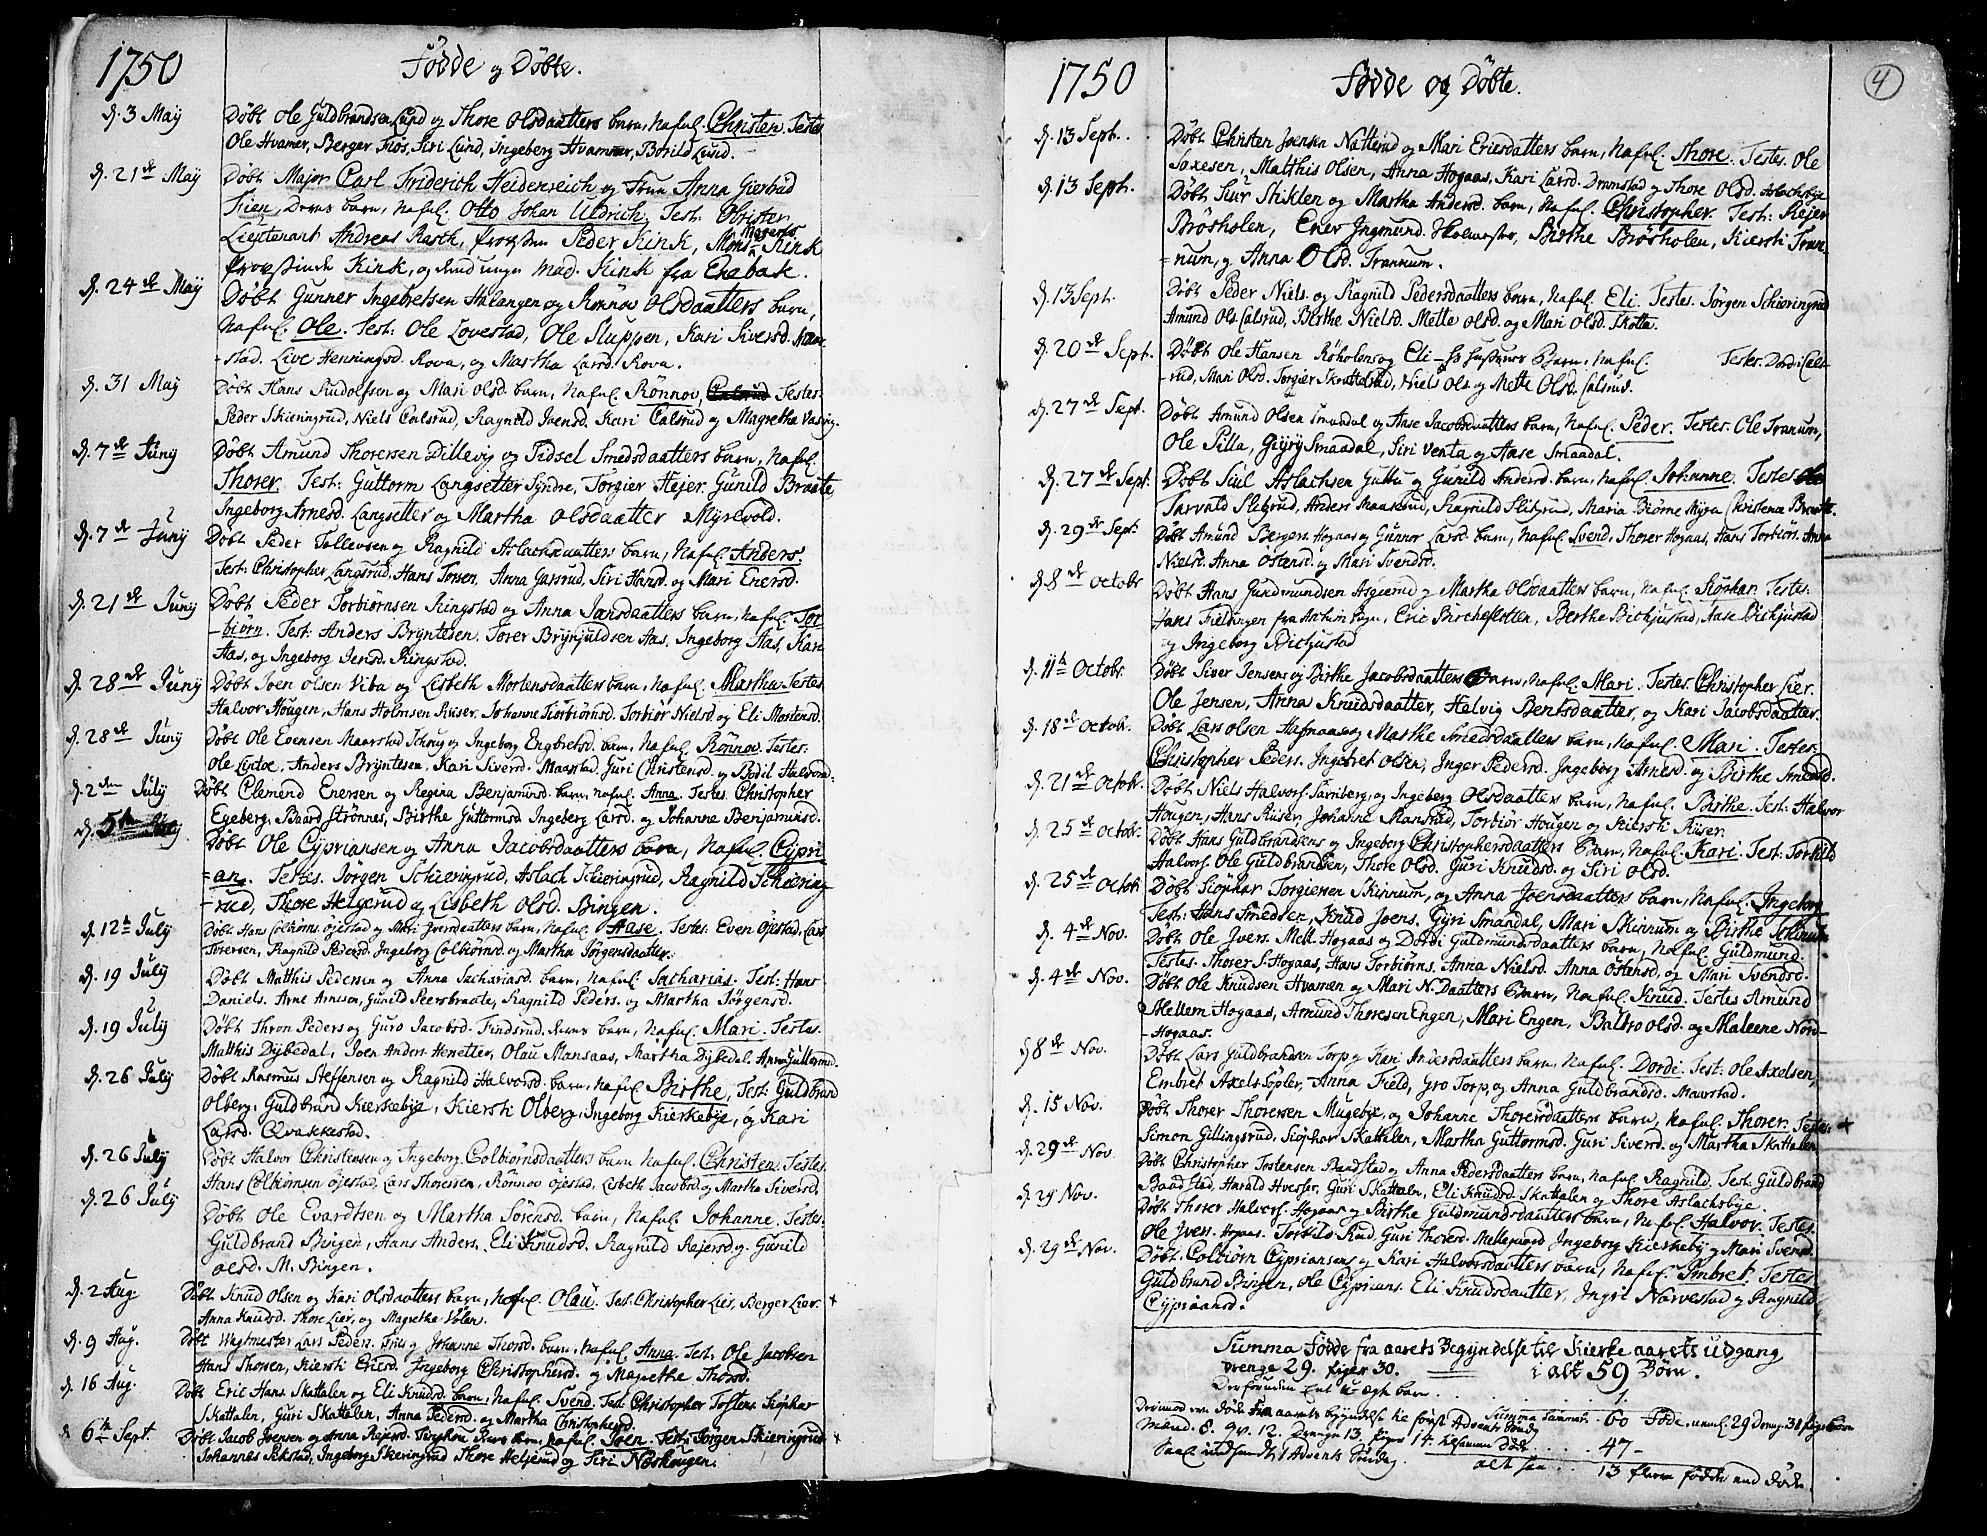 1750
Fødde og Døbte.
d. 3 May
Døbt Ole Guldbrandsen Lund og Thore Olsdaatters barn, Nafnl. Christen. Testes
Ole Hvamer, Berger Fios, Siri Lund, Ingeberg Hvammer, Borild Lund.
d. 21de May
Døbt Major Carl Friderich Heidenreich og Frue Anna Gierdrud
Frien, Deres barn, Nafnl. Otto Johan Uldrich. Test: Obrister
Lieutenant Andreas Rasch, Provsten Peder Kink, Mons. Mogens Kink
Provstinde Kink, og Mad. Kink fra Enebak.
d. 24de May
Døbt Gunner Ingebretsen Halangen og Rønnov Olsdaatters barn,
Nafnl. Ole. Test: Ole Lovestad, Ole Sluppen, Kari Siversd. Maar
-stad. Live Henningsd. Rova, og Martha Larsd. Rova.
d. 31 May
Døbt Hans Rudolfsen og Mari Olsd. barn, Nafnl. Rønnov, Testes.
Peder Skieringrud, Niels Calsrud, Ragnild Ivensd. Kari Calsrud og Magretha Vasvig.
d. 7de Juny
Døbt Amund Thorersen Dillevig og Sidsel Smedsdaatters barn, Nafnl.
Thorer. Test: Guttorm Langsetter Syndre, Torgier Hejer, Gunild Braate,
Ingeborg Arnesd. Langsetter og Martha Olsdaatter Myrevold.
d. 7de Juny
Døbt Peder Tollevsen og Ragnild Aslachsdaatters barn, Nafnl. Anders.
Test: Christopher Langsrud, Hans Torsen, Anna Garsrud, Siri Hansd. og Mari Enersd.
d. 21de Juny
Døbt Peder Torbiørnsen Ringstad og Anna Jensdaatters barn, Nafnl. Tor
-biørn. Test: Anders Bryntesen. Torer Brynjuldsen Aas, Ingeborg Aas, Kari
Aas, og Ingeborg Jensd. Ringstad.
d. 28de Juny
Døbt Joen Olsen Viba og Lisbeth Mortensdaatters barn, Nafnl. Martha. Testes
Halvor Hougen, Hans Holmsen Riiser, Johanne Torbiørnsd. Torbiør Nielsd. og Eli Mortensd.
d. 28de Juny
Døbt Ole Evensen Maarstad og Ingeborg Engbretsd. barn, Nafnl. Rønnov. Testes:
Ole Lystoe, Anders Bryntesen, Kari Siversd. Maarstad. Guri Christensd. og Bodil Halvorsd.
d. 2den July
Døbt Clemend Enersen og Regina Benjamind. barn, Nafnl. Anna. Testes. Christopher
Egeberg, Baard Strønnes, Birthe Guttormsd. Ingeberg Larsd. og Johanne Benjaminsd.
d. 5te July
Døbt Ole Cypriansen og Anna Jacobsdaatters barn, Nafnl. Cypri
=an. Testes. Jørgen Schieringrud, Aslach Schieringrud, Ragnild Schiering
-rud, Thore Helgerud og Lisbeth Olsd. Bingen.
d. 12te July
Døbt Hans Colbiørns. Øjestad og Mari Iversdaatters barn, Nafnl. Aase. Testes. Even Øjestad, Lars
Torersen, Ragnild Pedersd. Ingeborg Colbiørnsd. og Martha Jørgensdaatter.
d. 19 July
Døbt Matthis Pedersen og Anna Sachariasd. barn, Nafnl. Sacharias. Test: Hans
Daniels. Arne Arnesen, Gunild Peersbraate, Ragnild Peders. og Martha Jørgensd.
d. 19 July
Døbt Thron Peders og Guro Jacobsd. Findsrud. Deres barn, Nafnl. Mari. Testes.
Matthis Dybedal, Joen Anders. Henetter, Olau Mansaas, Martha Dybedal. Anna Guttormsd.
d. 26 July
Døbt Rasmus Steffensen og Ragnild Halvorsd. barn, Nafnl. Birthe, Test: Guldbrand
Olberg, Guldbrand Kierkebye, Kiersti Olberg, Ingeborg Kierkebye, og Kari
Larsd. Qvakkestad.
d. 26 July
Døbt Halvor Christensen og Ingeborg Colbiørnsdaatters barn Nafnl. Christen. Testes.
Hans Colbiørnsen Øjestad, Lars Thorersen, Rønnov Øjestad, Lisbeth Jacobsd. og Martha Siversd.
d. 26 July
Døbt Ole Evardtsen og Martha Sørensd. barn, Nafnl. Johanne. Testes.
Guldbrand Bingen, Hans Anders. Eli Knudsd. Ragnild Rejersd. og Gunild
Olsd. M. Bingen.
d. 2 Aug.
Døbt Knud Olsen og Kari Olsdaatters barn, Nafnl. Olau. Test. Christopher Lier, Berger Lier. +
Anna Knudsd. Thore Lier, og Magrethe Volen.
d. 9 Aug.
Døbt Wagtmester Lars Peders. Friis og Johanne Thorsd. barn, Nafnl. Anna. Test: Ole Jacobsen
Hans Thorsen, Kiersti Ericsd. Ingeborg Christophersd. og Magrethe Thorsd.
d. 16 Aug.
Døbt Eric Hans. Skattalen og Eli Knudsd. barn, Nafnl. Svend. Test: Christopher Tostens. Siøphar
Skattalen, Guri Skattalen, Anna Pedersd. og Martha Christophersd.
d. 6te Sept.
Døbt Jacob Joensen og Anna Rejersd. barn, Nafnl. Joen. Test: Jørgen Skieringrud +
Johannes Sikstad, Ingeborg Skieringrud Thore Heljerud og Siri Næshougen.
1750
Fødde og Døbte.
4
d. 13 Sept.
Døbt Christen Joensen Natterud og Mari Ericsdatters barn, Nafnl. Thore. Testes. Ole
Saxesen, Matthis Olsen, Anna Hogaas, Kari Larsd. Dramstad og Thore Olsd. Aslachsbye
d. 13 Sept.
Døbt Siur Stiklen og Martha Andersd. barn, Nafnl. Christopher. Test: Rejer
Brøsholen, Ener Ingmund. Skolmester, Birthe Brøsholen, Kiersti Tran-
=num, og Anna Olsd. Trannum.
d. 13 Sept.
Døbt Peder Niels. og Ragnild Pedersdaatters barn, Nafnl. Eli. Testes. Jørgen Schieringrud
Amund Ols. Calsrud, Birthe Nielsd. Mette Olsd. og Mari Olsd. Skotta.
d. 20de Sept.
Døbt Ole Hansen Røholen og Eli Hustrues Barn, Nafnl. Testes. Dordi Cals-
-rud, Mari Olsd. Torgier Skrattelsrud, Niels Ols. og Mette Olsd. Calsrud.
d. 27de Sept.
Døbt Amund Olsen Smaadal og Aase Jacobsdaatters barn, Nafnl. Peder. Testes. Ole Tranum,
Ole Pilla, Giyry Smaadal, Siri Venta og Aase Smaadal.
d. 27de Sept.
Døbt Siul Aslachsen Guttu og Gunild Andersd. barn, Nafnl. Johanne. Testes
Tarvald Slitrud, Anders Maaserud, Ragnild Slitrud, Maria Biørne Myra Christence Braate.
d. 29de Sept.
Døbt Amund Bergers. Hogaas og Gunnor Larsd. barn, Nafnl. Svend, Thorer Hogaas, Hans Torbiørs. Anna
Nielsd. Anna Østensd. og Mari Svendsd.
d. 8de Octobr
Døbt Hans Gundmundsen Asgierud og Martha Olsdaatters barn, Nafnl. Siøphar. Testes.
Hans Fieldingen fra Sogn, Eric Bircheflotten, Berthe Bithjustad, Aase Bithjustad
og Ingeborg Bithjustad
d. 11te Octobr.
Døbt Siver Jensens og Birthe Jacobsdaatters Barn, Nafnl. Mari. Testes. Christopher Lier.
Ole Jensen, Anna Knudsdaatter, Halvig Bentsdaatter, og Kari Jacobsdaatter.
d. 18de Octobr.
Døbt Lars Olsen Hafnaas og Marthe Smedsdaatters barn, Nafnl. Mari. Testes:
Christopher Peders. Ingebret Olsen, Inger Pedersd. Ingeborg Arnesd. og Birthe Smedsd.
d. 21de Octobr.
Døbt Niels Halvors. Tarniberg, og Ingeberg Olsdaatters barn, Nafnl. Birthe. Test: Halvor
Hougen, Hans Riiser, Johanne Mansrud, Torbiør Hougen og Kiersti Riiser.
d. 25de Octobr.
Døbt Hans Guldbrandsens og Ingeborg Christophersdaatters Barn, Nafnl. Kari. Test: Torkild
Halvors. Ole Guldbrandsen, Thore Olsd. Guri Knudsd. og Siri Olsd.
d. 25de Octobr
Døbt Siøphar Torgiersen Skinnum, og Anna Joensdaatters barn, Nafnl. Ingeborg
Test: Hans Smedsen, Knud Joens. Gyri Smaadal, Mari Skinnum og Birthe Schinnum
d. 4de Nov.
Døbt Ole Ivers. Mell. Hogaas og Dordi Guldmundsdaatters barn, Nafnl. Guldmund.
Testes. Thorer S. Hogaas, Hans Torbiørns. Anna Nielsd. Anna Østensd. og Mari Svendsd.
d. 4de Nov.
Døbt Ole Knudsen Hvamen og Mari N. Daatters Barn, Nafnl. Knud. Testes Amund
Mellem Hogaas, Amund Thoresen Engen, Mari Engen, Baldro Olsd. og Maleene Nord-
-Hogaas.
d. 8de Nov.
Døbt Lars Guldbrandsen Torp og Kari Andersdaatters barn, Nafnl. Dordi. Test: Ole Axelsen,
Embret Axels. Søpler, Anna Field, Gro Torp, og Anna Guldbrandsd. Maarstad.
d. 15 Nov.
Døbt Thorer Thorersen Mugebye, og Johanne Thorersdaatters barn, Nafnl. Thorer. Testes +
Simon Gillingsrud, Siøphar Skattalen, Martha Guttormsd. Guri Siversd. og Martha Skattalen
d. 29de Nov.
Døbt Christopher Tostensen Baadstad og Anna Pedersdaatters barn, Nafnl. Ragnild. Test: Guldbrand
Baadstad, Harald Hvesser, Guri Skattalen, Eli Knudsd. Skattalen og Thore Aslachsbye.
d. 29 Nov.
Døbt Thorer Halvors. Hogaas og Birthe Guldmundsdaatters barn, Nafnl. Halvor. Testes.
Ole Ivers. Hogaas. Torkild Rud, Guri Thoresd. Mellegaard Ingeborg Kierkeby og Mari Svendsd.
d. 29de Nov.
Døbt Colbiørn Cypriansens og Kari Halvorsdaatters barn, Nafnl. Imbret. Testes
Guldbrand Bingen, Ole Cyprians. Eli Knudsdaatter, Ingri Narvestad og Ragnild
Cypriansd.
Summa Fødde fra aarets Begyndelse til Kierke aarets udgang
Drenge 29. Piger 30. i alt 59 Børn.
Derforuden Eet U-ægte barn . . . 1.
Summa Sammat. 60 Føde. nemlig 29 Drenge 31 Pigebørn
Derimod ere døde fra aarets begyndelse til først Advents Søndag
Mænd. 8. Qv. 12. Drenge 13. Piger 14. tilsammen Døde . . . 47 -
alt saa . . 13 fleere fødde end døde.